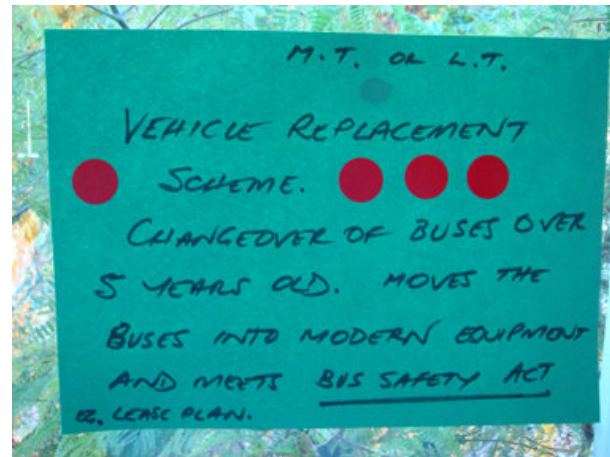 M.T. OR L.T.
VEHICLE REPLACEMENT
SCHEME.
CHANGEOVER OF BUSES OVER
5 YEARS OLD. MOVES THE
BUSES INTO MODERN EQUIPMENT
AND MEETS BUS SAFETY ACT
eg. LEASE PLAN.